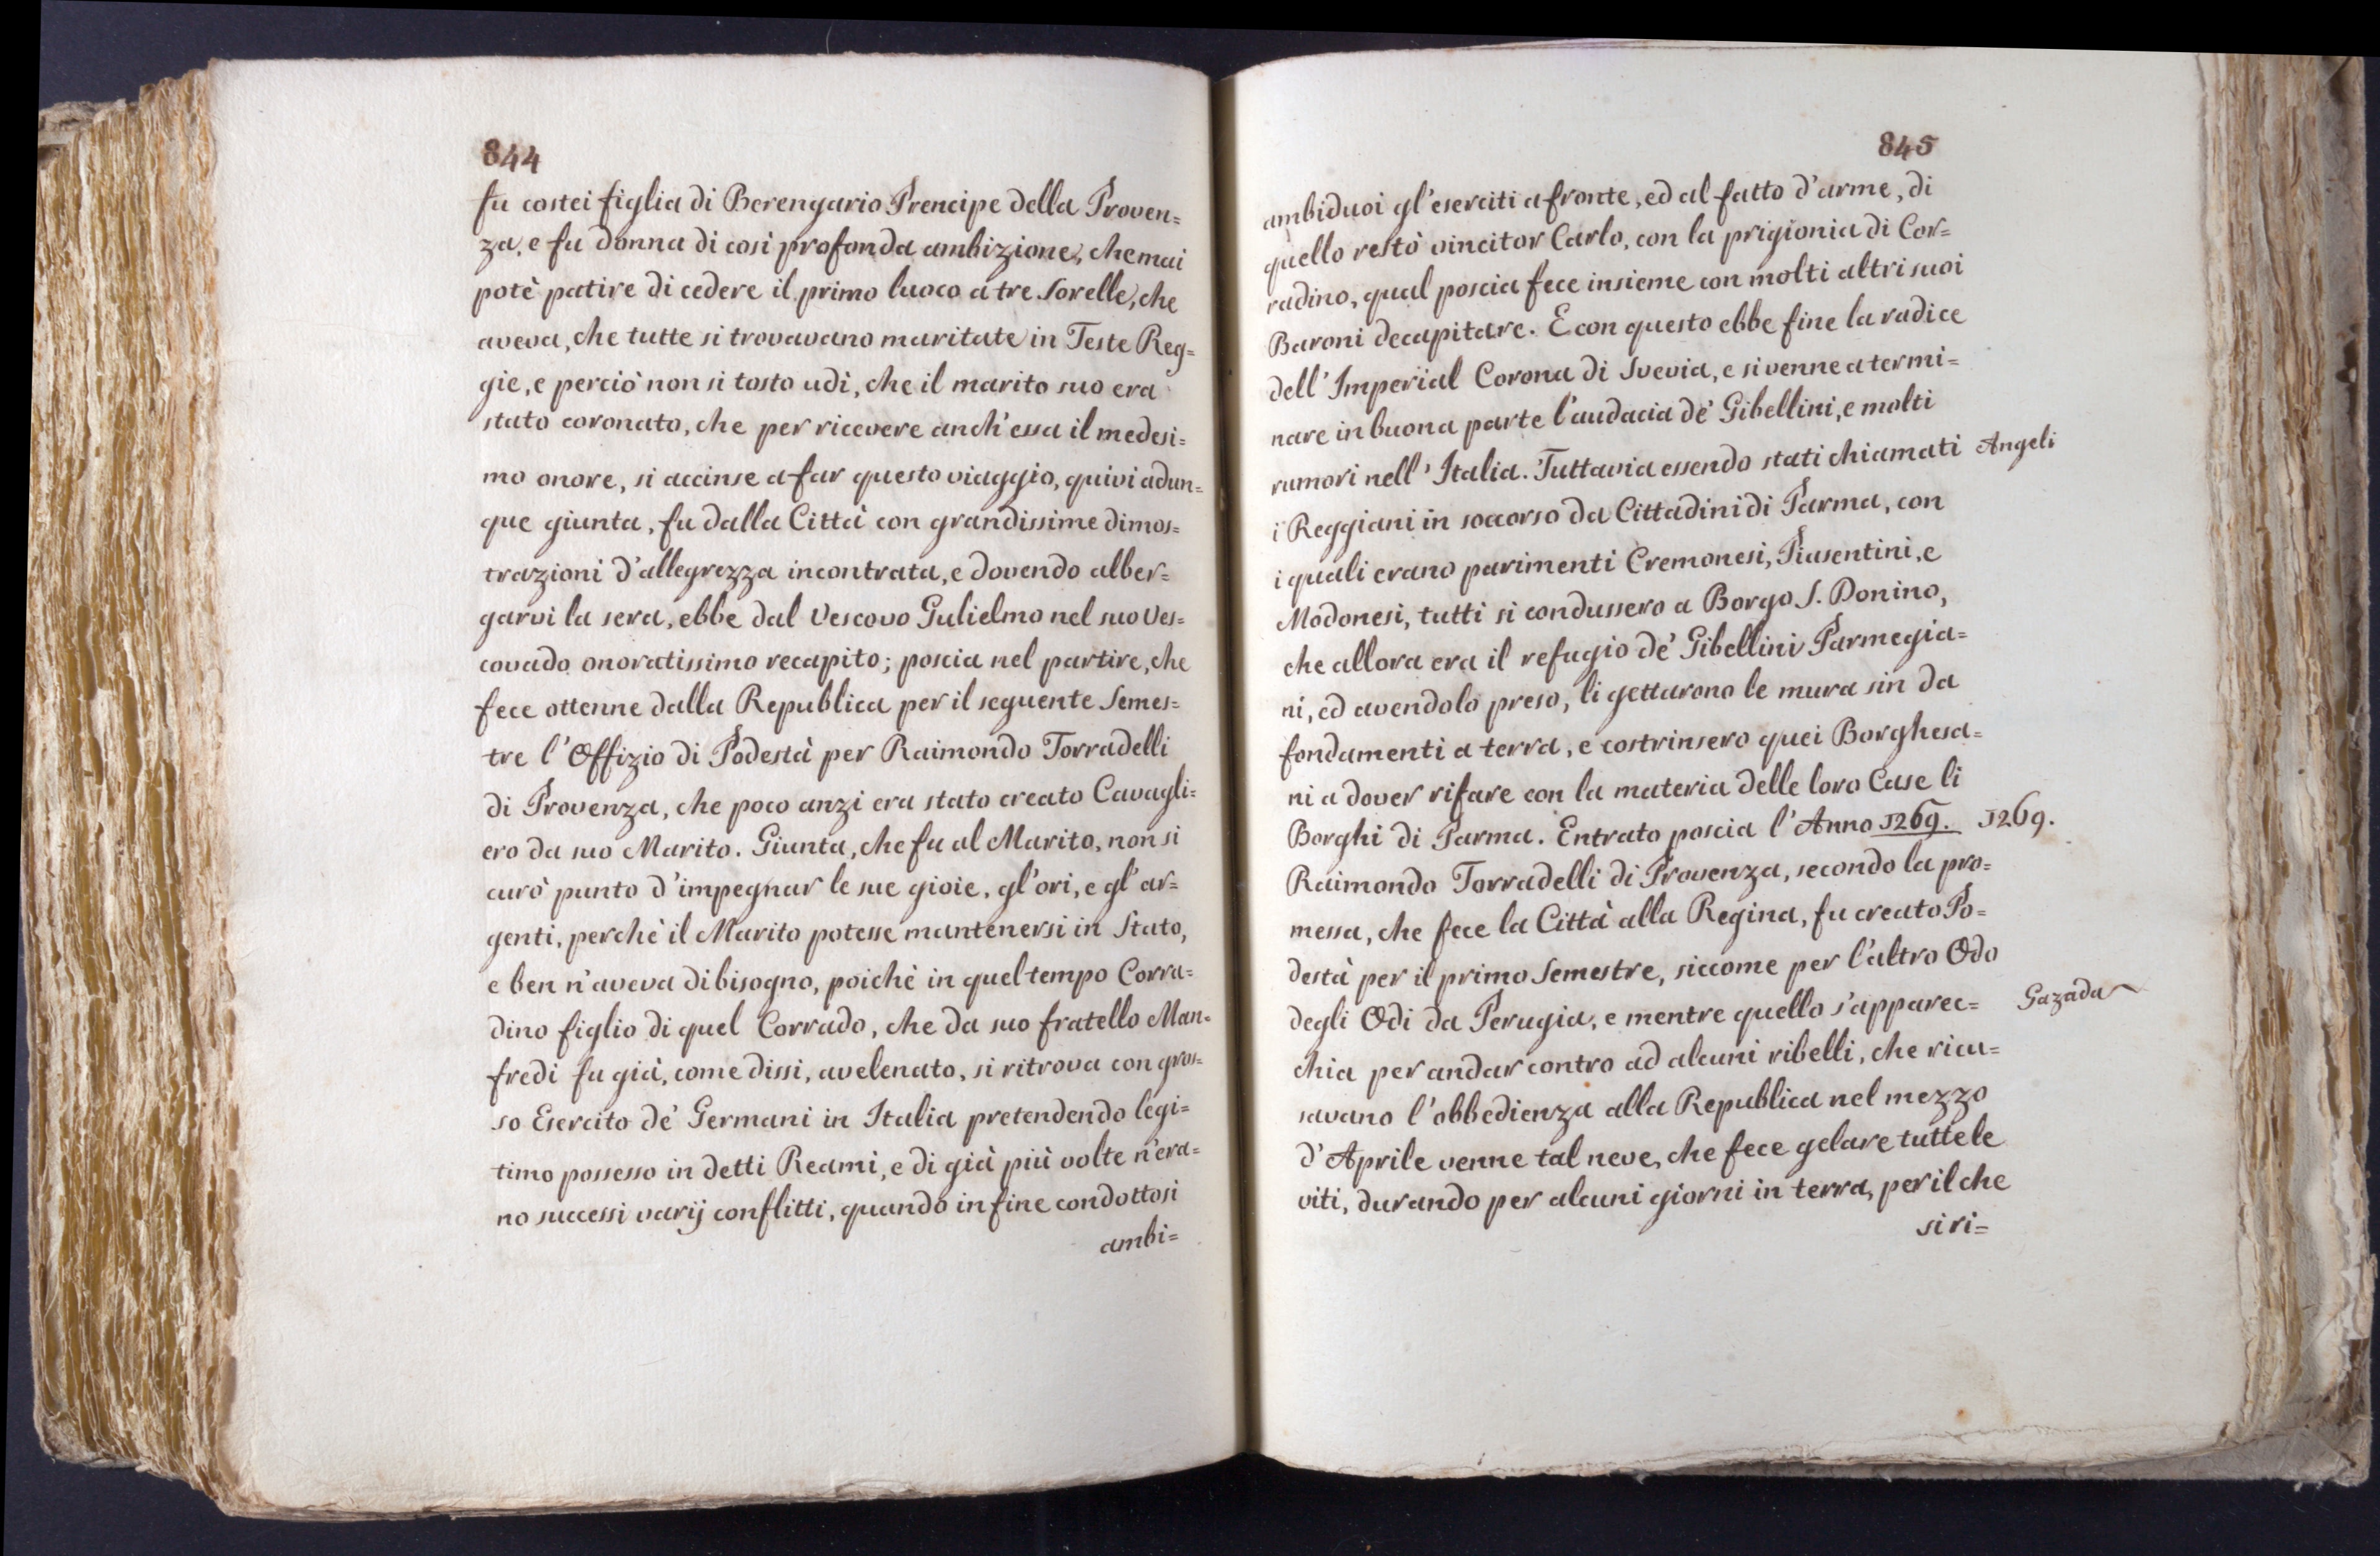 844
fu costei figlia di Berengario Prencipe della Proven=
za, e fu donna di così profonda ambizione, che mai
potè patire di cedere il primo luoco a tre Sorelle, che
aveva, che tutte si trovavano maritate in Teste Reg=
gie, e perciò non si tosto udì, che il marito suo era
stato coronato, che per ricevere anch'essa il medesi=
mo onore, si accinse a far questo viaggio, quivi adun=
que giunta, fu dalla Città con grandissime dimos=
trazioni d'allegrezza incontrata, e dovendo alber=
garvi la sera, ebbe dal Vescovo Gulielmo nel suo Ves=
covado onoratissimo recapito; poscia nel partire, che
fece ottenne dalla Republica per il seguente Semes=
tre l'Offizio di Podestà per Raimondo Torradelli
di Provenza, che poco anzi era stato creato Cavagli=
ero da suo Marito. Giunta, che fu al Marito, non si
curò punto d'impegnar le sue gioie, gl'ori, e gl'ar=
genti, perchè il Marito potesse mantenersi in Stato,
e ben n'aveva di bisogno, poichè in quel tempo Corra=
dino figlio di quel Corrado, che da suo fratello Man=
fredi fu già, come dissi, avelenato, si ritrova con gros=
so Esercito de' Germani in Italia pretendendo legi=
timo possesso in detti Reami, e di già più volte n'era=
no successi varij conflitti, quando in fine condottosi
ambi=
845
ambiduoi gl'eserciti a fronte, ed al fatto d'arme, di
quello restò vincitor Carlo, con la prigionia di Cor=
radino, qual poscia fece insieme con molti altri suoi
Baroni decapitare. E con questo ebbe fine la radice
dell'Imperial Corona di Svevia, e si venne a termi=
nare in buona parte l'audacia de' Gibellini, e molti
rumori nell'Italia. Tuttavia essendo stati chiamati Angeli
i Reggiani in soccorso da Cittadini di Parma, con
i quali erano parimenti Cremonesi, Piasentini, e
Modonesi, tutti si condussero a Borgo S. Donino,
che allora era il refugio de' Gibellini Parmegia=
ni, ed avendolo preso, li gettarono le mura sin da
fondamenti a terra, e costrinsero quei Borghesa=
ni a dover rifare con la materia delle loro Case li
Borghi di Parma. Entrato poscia l'Anno 1269. 1269.
Raimondo Torradelli di Provenza, secondo la pro=
messa, che fece la Città alla Regina, fu creato Po=
destà per il primo Semestre, siccome per l'altro Odo
degli Odi da Perugia, e mentre quello s'apparec= Gazada
chia per andar contro ad alcuni ribelli, che ricu=
savano l'obbedienza alla Republica nel mezzo
d'Aprile venne tal neve, che fece gelare tutte le
viti, durando per alcuni giorni in terra, per il che
si ri=